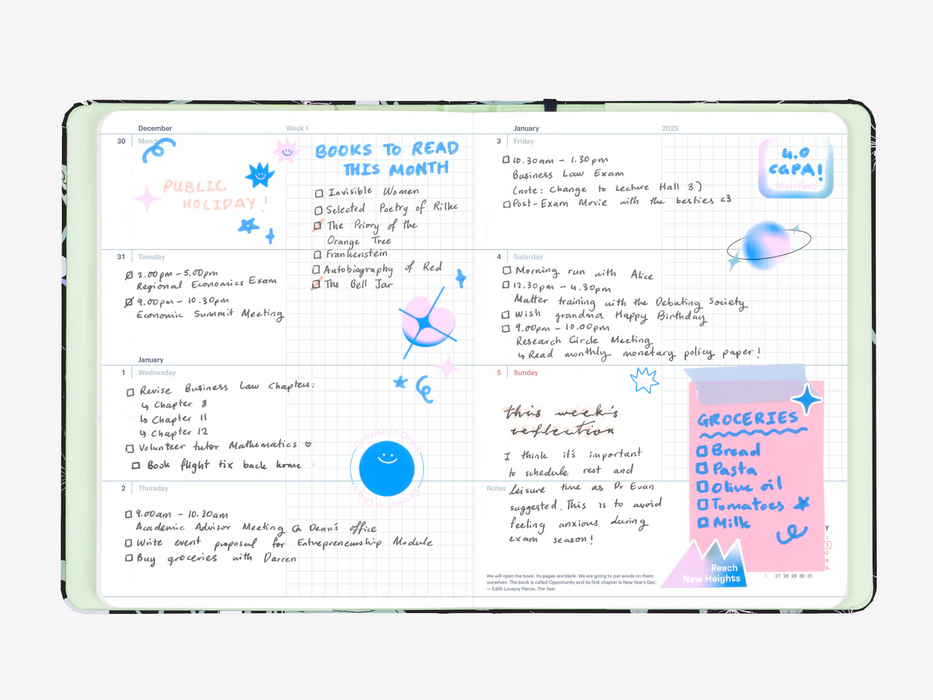 December
Week 1
30
Monday
PUBLIC
HOLIDAY!
BOOKS TO READ
THIS MONTH
Invisible Women
Selected Poetry of Rilke
The Priory of the
Orange Tree
Frankenstein
Autobiography of Red
The Bell Jar
31
Tuesday
2.00pm - 5.00pm
Regional Economics Exam
9.00pm - 10.30pm
Economic Summit Meeting
January
1
Wednesday
Revise Business Law Chapters:
↳ Chapter 8
↳ Chapter 11
↳ Chapter 12
Volunteer tutor Mathematics ♡
Book flight tix back home
2
Thursday
9.00am - 10.30am
Academic Advisor Meeting @ Dean's office
Write event proposal for Entrepreneurship Module
Buy groceries with Darren
January
2025
3
Friday
10.30am - 1.30pm
Business Law Exam
(note: Change to Lecture Hall 3)
Post-Exam Movie with the besties <3
4.0
CGPA!
4
Saturday
Morning run with Alice
12.30pm - 4.30pm
Matter training with the Debating Society
Wish grandma Happy Birthday
9.00pm - 10.00pm
Research Circle Meeting
↳ Read monthly monetary policy paper!
5
Sunday
this week's
reflection
I think it's important
to schedule rest and
Notes
leisure time as Dr Evan
suggested. This is to avoid
feeling anxious during
exam season!
GROCERIES
Bread
Pasta
Olive oil
Tomatoes
Milk
Reach
New Heights
27 28 29 30 31
We will open the book. Its pages are blank. We are going to put words on them
ourselves. The book is called Opportunity and its first chapter is New Year's Day.
— Edith Lovejoy Pierce, The Year